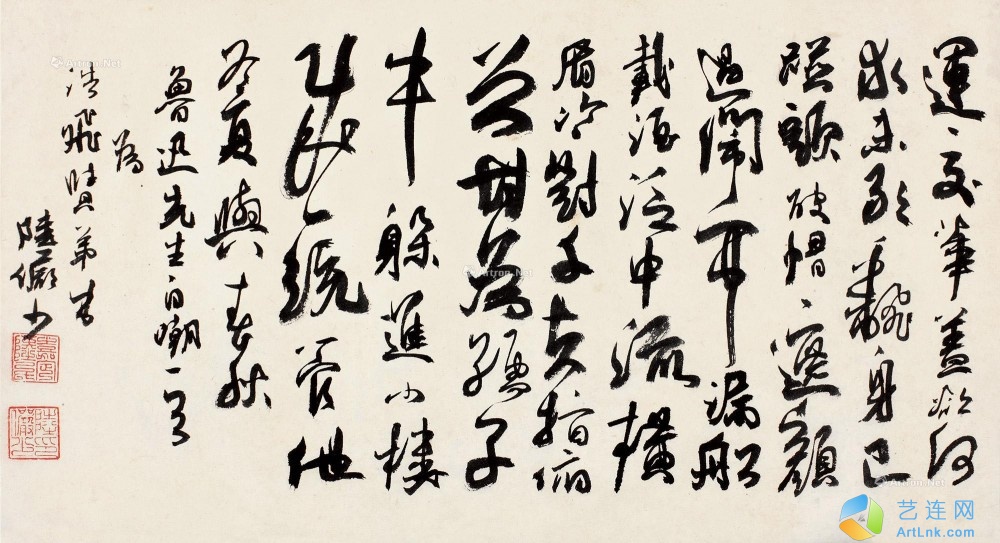 運交華蓋欲何
求未敢翻身已
碰頭破帽遮顏
過鬧市漏船
載酒泛中流橫
眉冷對千夫指俯
首甘為孺子
牛躲進小樓
成一統管他
冬夏與春秋
魯迅先生自嘲一首
為
浩飛賢弟書
陸儼少
艺连网
ArtLnk.com